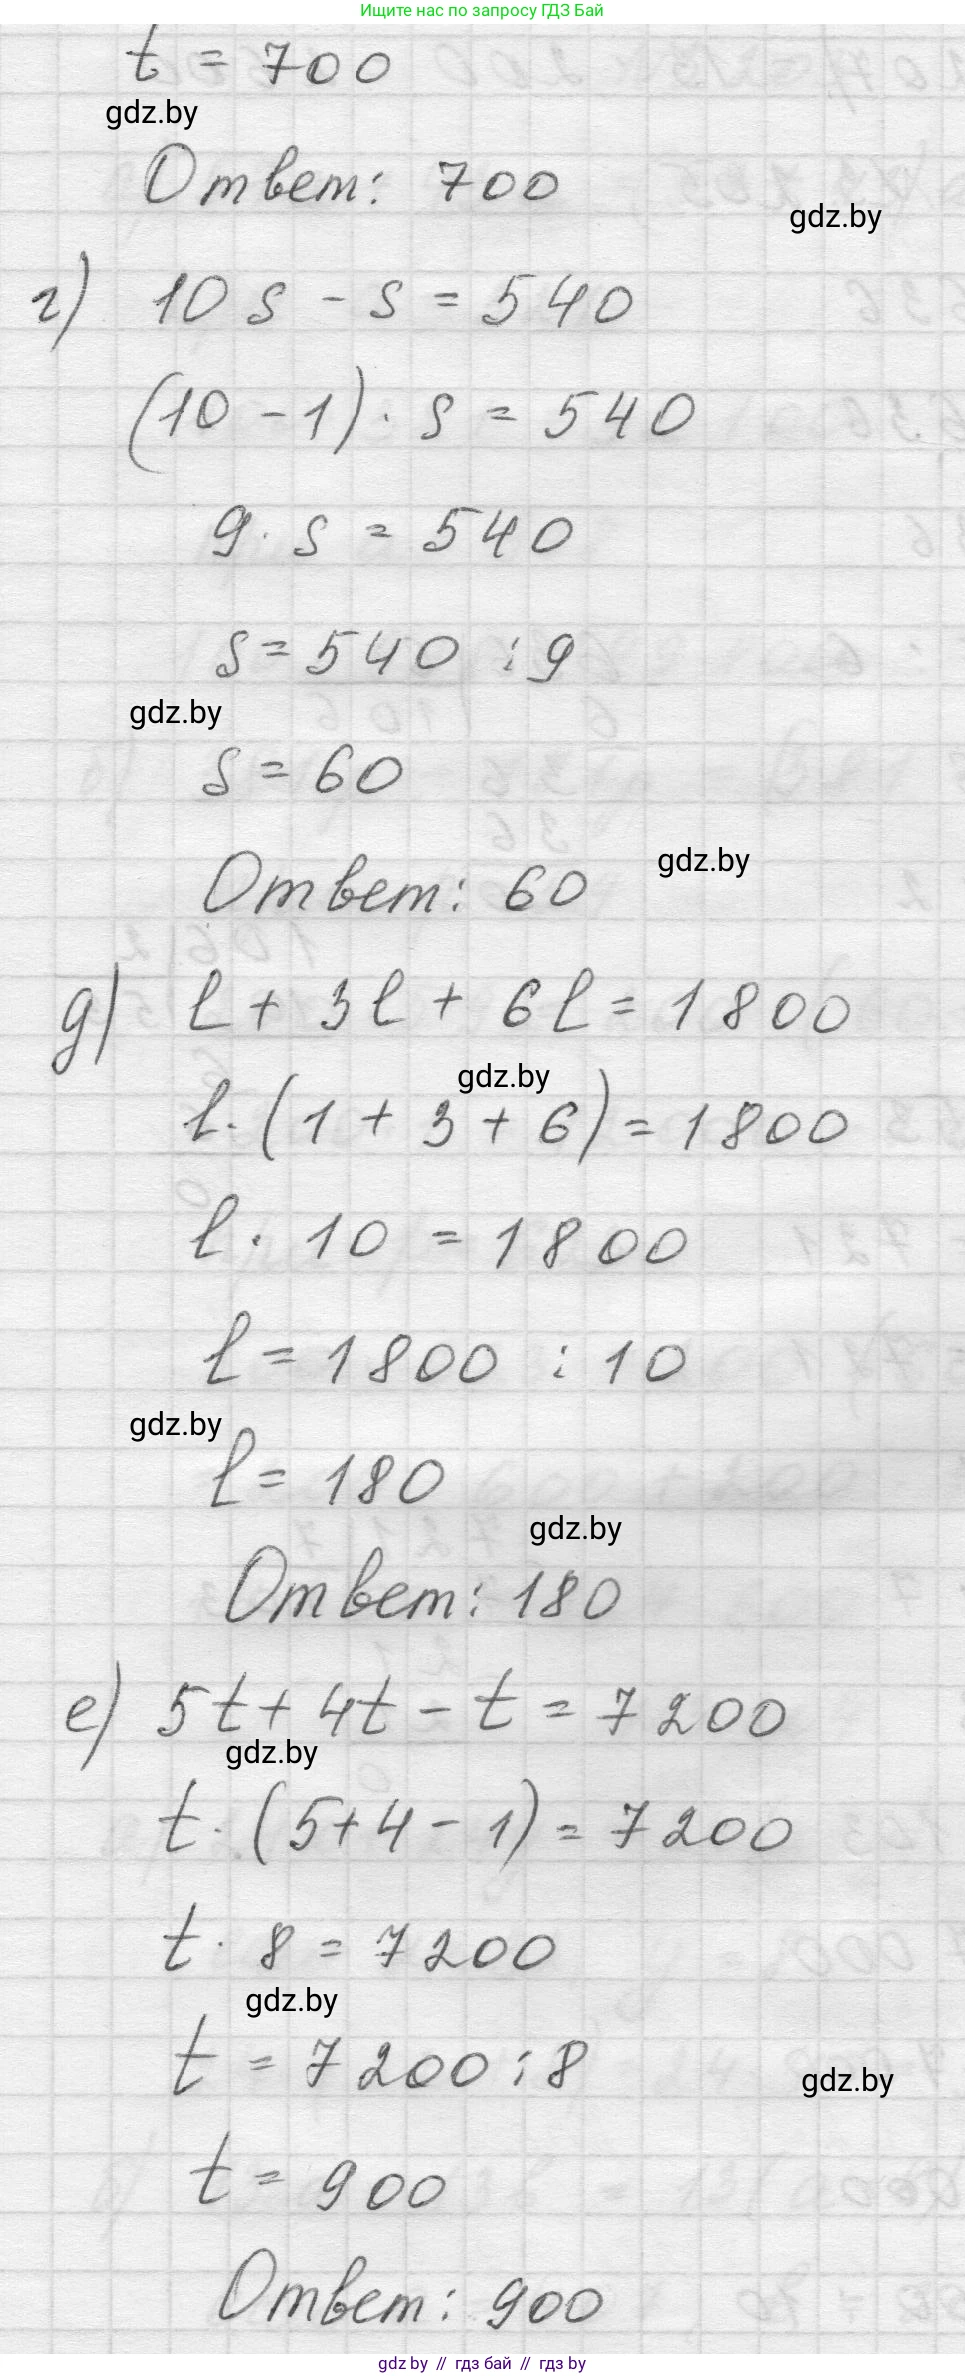 Ищите нас по запросу ГДЗ Бай
t = 700
gdz.by
Ответ: 700
gdz.by
г) 10 s - s = 540
(10 - 1) · s = 540
9 · s = 540
s = 540 : 9
gdz.by
s = 60
gdz.by
Ответ: 60
д) l + 3l + 6l = 1800
gdz.by
l · (1 + 3 + 6) = 1800
l · 10 = 1800
l = 1800 : 10
gdz.by
l = 180
gdz.by
Ответ: 180
е) 5t + 4t - t = 7200
gdz.by
t · (5 + 4 - 1) = 7200
t · 8 = 7200
gdz.by
t = 7200 : 8
gdz.by
t = 900
Ответ: 900
gdz by // гдз бай // гдз by